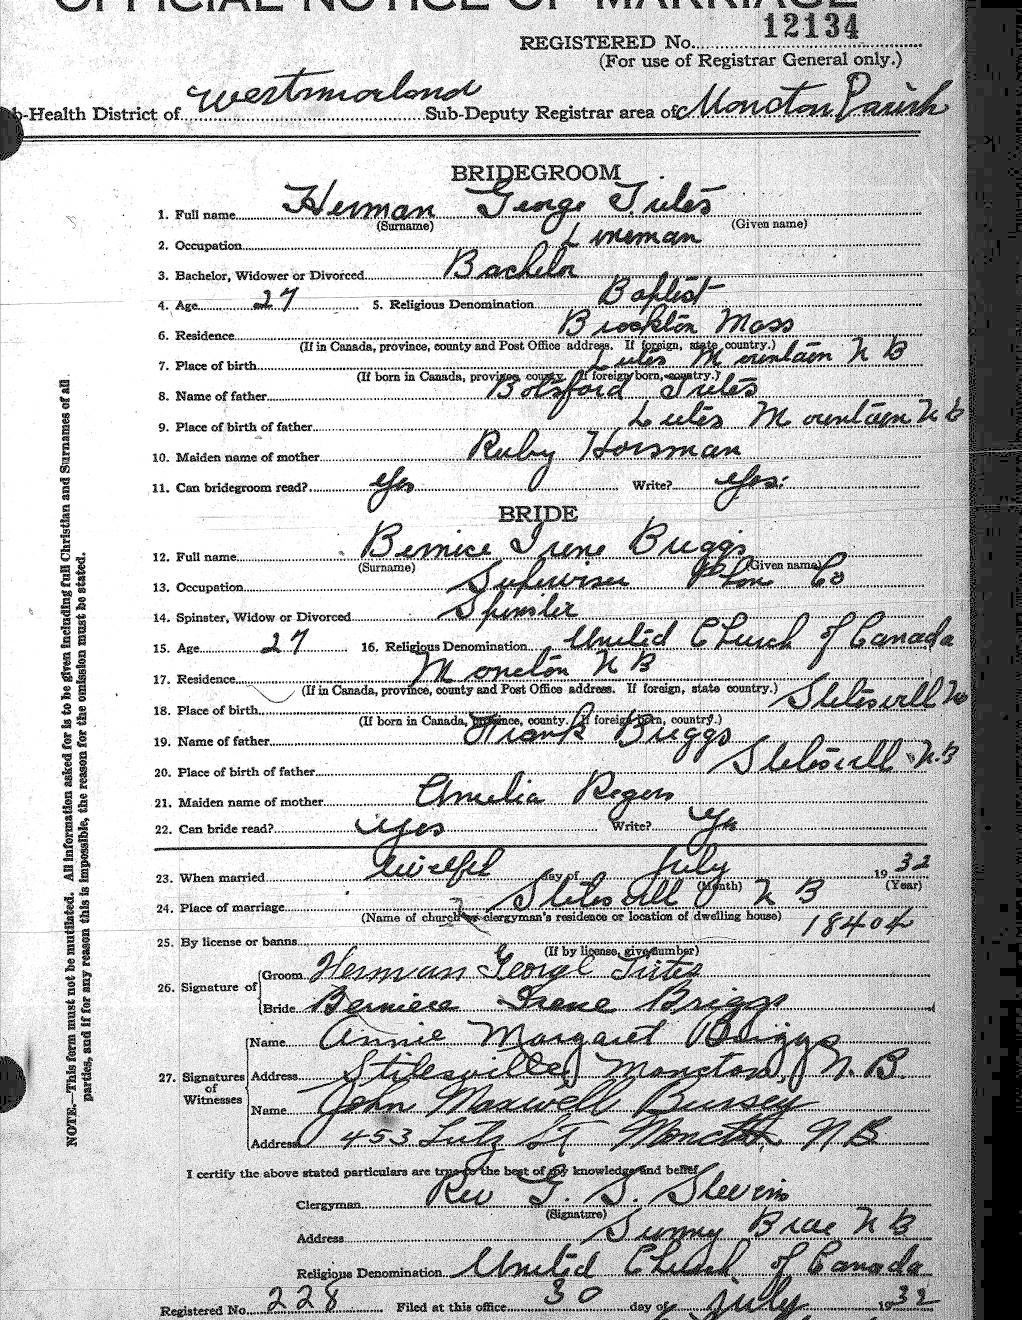 OFFICIAL NOTICE OF MARRIAGE
REGISTERED No. 12134
(For use of Registrar General only.)
b-Health District of Westmorland Sub-Deputy Registrar area of Moncton Parish
BRIDEGROOM
1. Full name Herman George Trites
(Surname) (Given name)
2. Occupation Lineman
3. Bachelor, Widower or Divorced Bachelor
4. Age 27 5. Religious Denomination Baptist
6. Residence Brockton Mass
(If in Canada, province, county and Post Office address. If foreign, state country.)
7. Place of birth Lutes Mountain N B
(If born in Canada, province, county. If foreign born, country.)
8. Name of father Botsford Trites
9. Place of birth of father Lutes Mountain N B
10. Maiden name of mother Ruby Horsman
11. Can bridegroom read? Yes Write? Yes.
BRIDE
12. Full name Bernice Irene Briggs
(Surname) (Given name)
13. Occupation Superviser Phone Co
14. Spinster, Widow or Divorced Spinster
15. Age 27 16. Religious Denomination United Church of Canada
17. Residence Moncton N B
(If in Canada, province, county and Post Office address. If foreign, state country.)
18. Place of birth Stilesvill NB
(If born in Canada, province, county. If foreign born, country.)
19. Name of father Frank Briggs
20. Place of birth of father Stilesvill N.B
21. Maiden name of mother Amelia Rogers
22. Can bride read? Yes Write? Yes
23. When married twelfth day of July 1932
(Month) (Year)
24. Place of marriage Stilesvill N B
(Name of church or clergyman's residence or location of dwelling house)
25. By license or banns 18404
(If by license, give number)
26. Signature of
Groom Herman George Trites
Bride Berniece Irene Briggs
27. Signatures of Witnesses
Name Annie Margaret Briggs
Address Stilesville, Moncton, N.B.
Name John Maxwell Bussey
Address 453 Lutz St Moncton NB
I certify the above stated particulars are true to the best of my knowledge and belief.
Clergyman Rev G. S. Stevens
(Signature)
Address Sunny Brae N B
Religious Denomination United Church of Canada
Registered No. 228 Filed at this office 30 day of July 1932
NOTE.—This form must not be mutilated. All information asked for is to be given including full Christian and Surnames of all
parties, and if for any reason this is impossible, the reason for the omission must be stated.